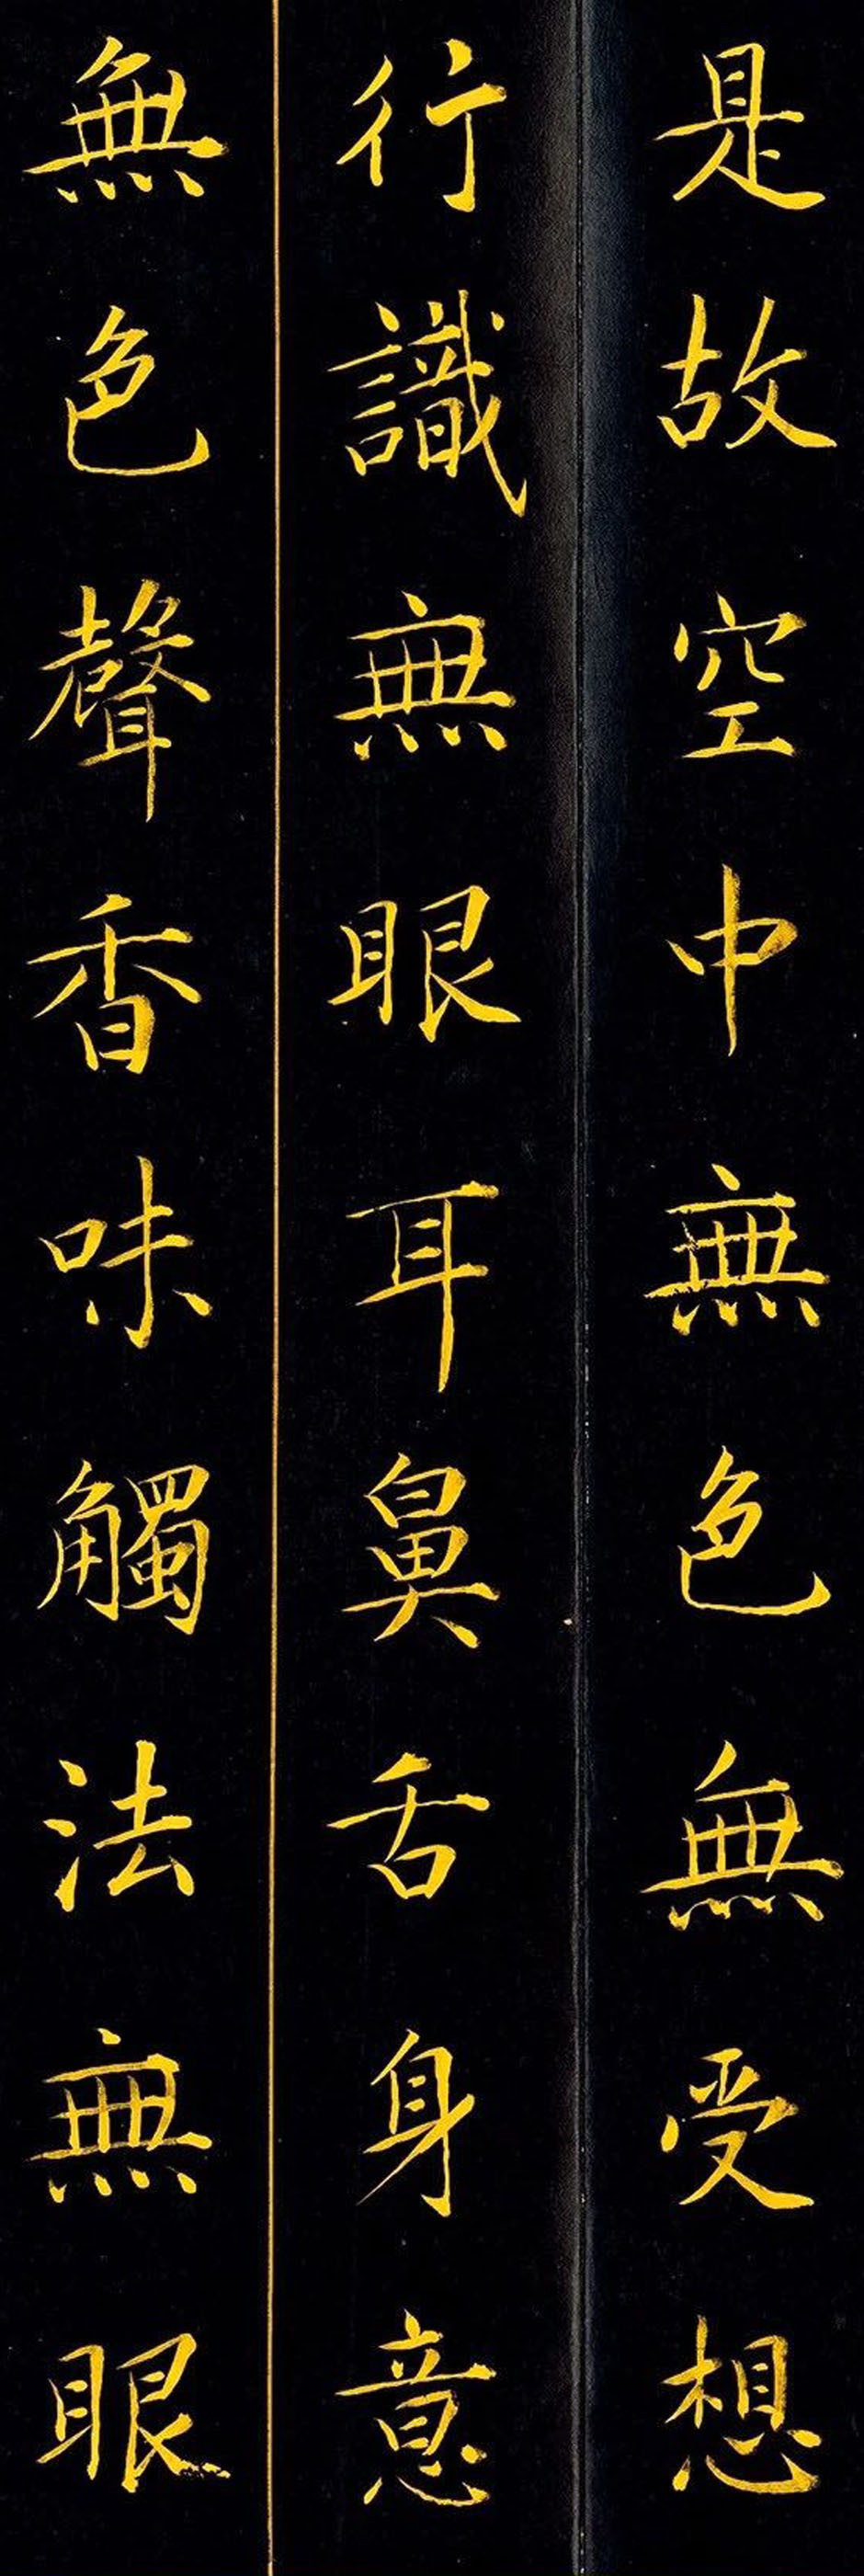 是故空中無色無受想
行識無眼耳鼻舌身意
無色聲香味觸法無眼